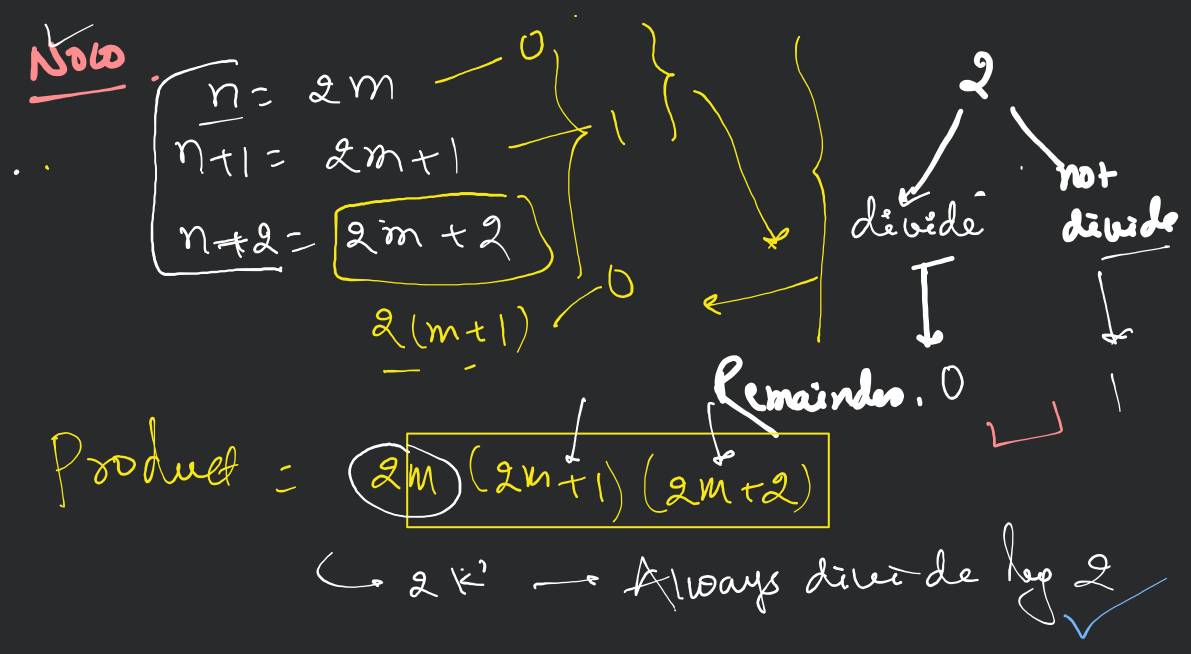 Now
n = 2m 0
n+1 = 2m+1 1
n+2 = 2m+2 0
2(m+1)
2
divide not divide
Remainder. 0 1
Product = 2m (2m+1) (2m+2)
2k' → Always divide by 2